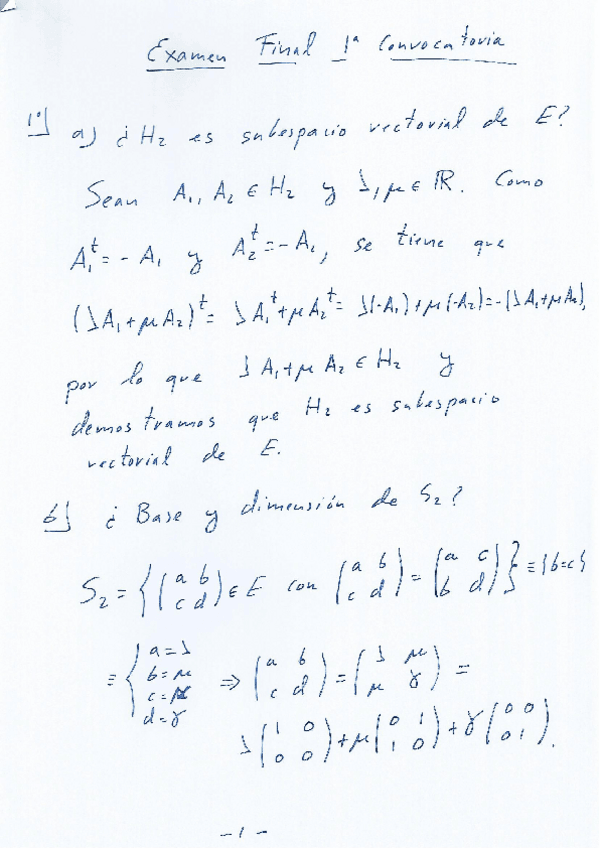 Examen Final 1ª Convocatoria
1º) a) ¿H₂ es subespacio vectorial de E?
Sean A₁, A₂ ∈ H₂ y λ, μ ∈ ℝ. Como
A₁ᵗ = - A₁ y A₂ᵗ = - A₂, se tiene que
(λA₁ + μA₂)ᵗ = λA₁ᵗ + μA₂ᵗ = λ(-A₁) + μ(-A₂) = -(λA₁ + μA₂),
por lo que λA₁ + μA₂ ∈ H₂ y
demostramos que H₂ es subespacio
vectorial de E.
b) ¿Base y dimensión de S₂?
S₂ = { (a b; c d) ∈ E con (a b; c d) = (a c; b d) } ≡ {b=c}
≡ { a = λ
b = μ
c = μ
d = γ
⇒ (a b; c d) = (λ μ; μ γ) =
λ (1 0; 0 0) + μ (0 1; 1 0) + γ (0 0; 0 1).
-1-